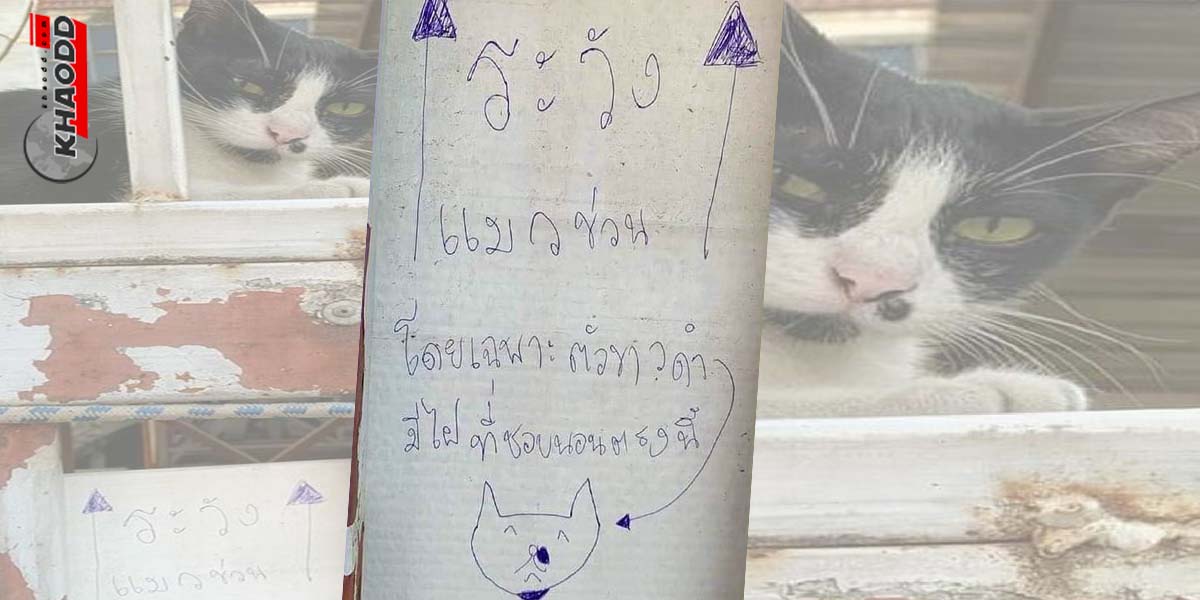 khaodd.com
KHAODD
ระวัง
แมวข่วน
โดยเฉพาะตัวขาวดำ
มีไฝที่ชอบนอนตรงนี้
ระวัง
แมวข่วน